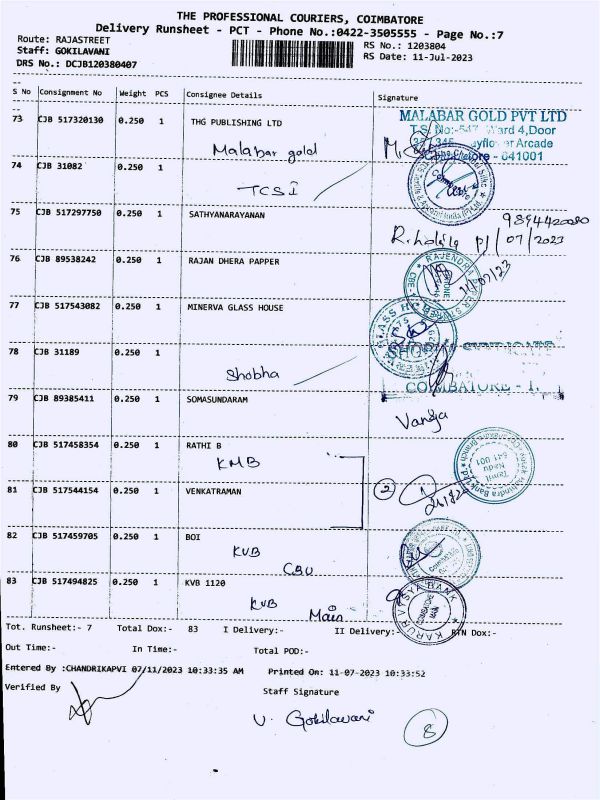 THE PROFESSIONAL COURIERS, COIMBATORE
Delivery Runsheet - PCT - Phone No.:0422-3505555 - Page No.:7
Route: RAJASTREET
RS No.: 1203804
Staff: GOKILAVANI
RS Date: 11-Jul-2023
DRS No.: DCJB120380407
S No Consignment No Weight PCS Consignee Details Signature
73 CJB 517320130 0.250 1 THG PUBLISHING LTD
Malabar gold
MALABAR GOLD PVT LTD
Ward 4,Door
Arcade
641001
74 CJB 31082 0.250 1
TCSI
75 CJB 517297750 0.250 1 SATHYANARAYANAN
9894420080
/07/2023
76 CJB 89538242 0.250 1 RAJAN DHERA PAPPER
77 CJB 517543082 0.250 1 MINERVA GLASS HOUSE
78 CJB 31189 0.250 1
Shobha
COIMBATORE - 1.
79 CJB 89385411 0.250 1 SOMASUNDARAM
80 CJB 517458354 0.250 1 RATHI B
KMB
Tamil
Nadu
641 001
81 CJB 517544154 0.250 1 VENKATRAMAN
2
82 CJB 517459705 0.250 1 BOI
KVB
CBU
83 CJB 517494825 0.250 1 KVB 1120
KVB
Main
KARUR VYSYA BANK
Tot. Runsheet:- 7 Total Dox:- 83 I Delivery:- II Delivery:- RTN Dox:-
Out Time:- In Time:- Total POD:-
Entered By :CHANDRIKAPVI 07/11/2023 10:33:35 AM Printed On: 11-07-2023 10:33:52
Verified By Staff Signature
V. Gokilavani
8